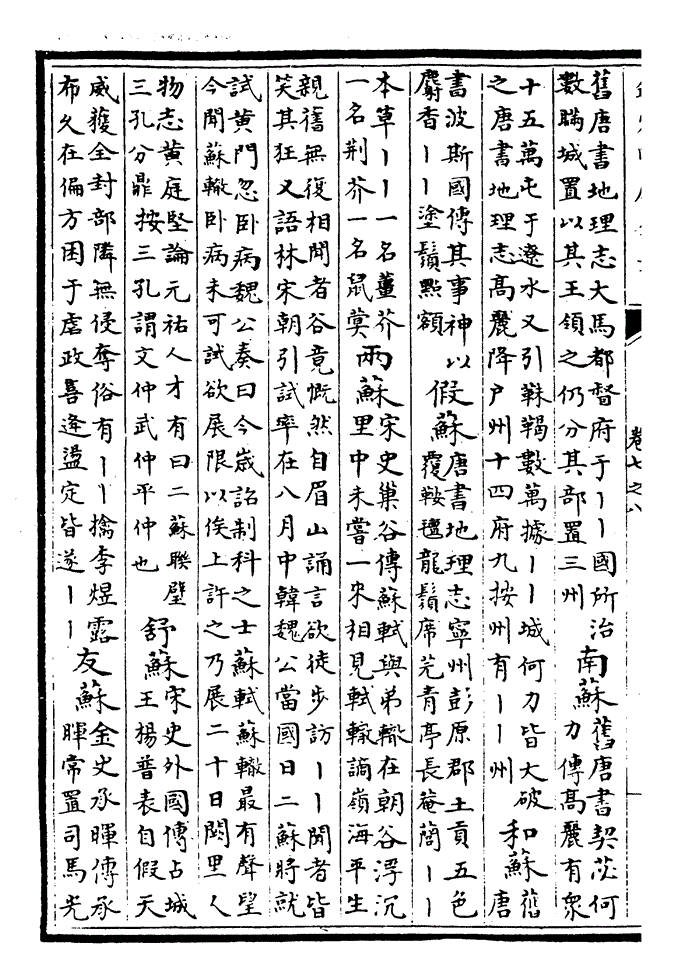 舊唐書地理志大馬都督府于丨丨國所治
數瞞城置以其王領之仍分其部置三州
南蘇
舊唐書契苾何
力傳高麗有衆
十五萬屯于遼水又引靺鞨數萬據丨丨城何力皆大破
之唐書地理志高麗降户州十四府九按州有丨丨州
和蘇
舊
唐
書波斯國傳其事神以
麝香丨丨塗鬚點額
假蘇
唐書地理志寧州彭原郡土貢五色
覆鞍氊龍鬚席芫青亭長菴䕡丨丨
本草丨丨一名薑芥
一名荆芥一名鼠蓂
兩蘇
宋史巢谷傳蘇軾與弟轍在朝谷浮沉
里中未嘗一來相見軾轍謫嶺海平生
親舊無復相聞者谷竟慨然自眉山誦言欲徒步訪丨丨聞者皆
笑其狂又語林宋朝引試率在八月中韓魏公當國日二蘇將就
試黄門忽卧病魏公奏曰今歳詔制科之士蘇軾蘇轍最有聲望
今聞蘇轍卧病未可試欲展限以俟上許之乃展二十日闕里人
物志黄庭堅論元祐人才有曰二蘇聯璧
三孔分鼎按三孔謂文仲武仲平仲也
舒蘇
宋史外國傳占城
王楊普表自假天
威獲全封部隣無侵奪俗有丨丨擒李煜露
布久在偏方困于虐政喜逢盪定皆遂丨丨
友蘇
金史承暉傳承
暉常置司馬光
卷七之八